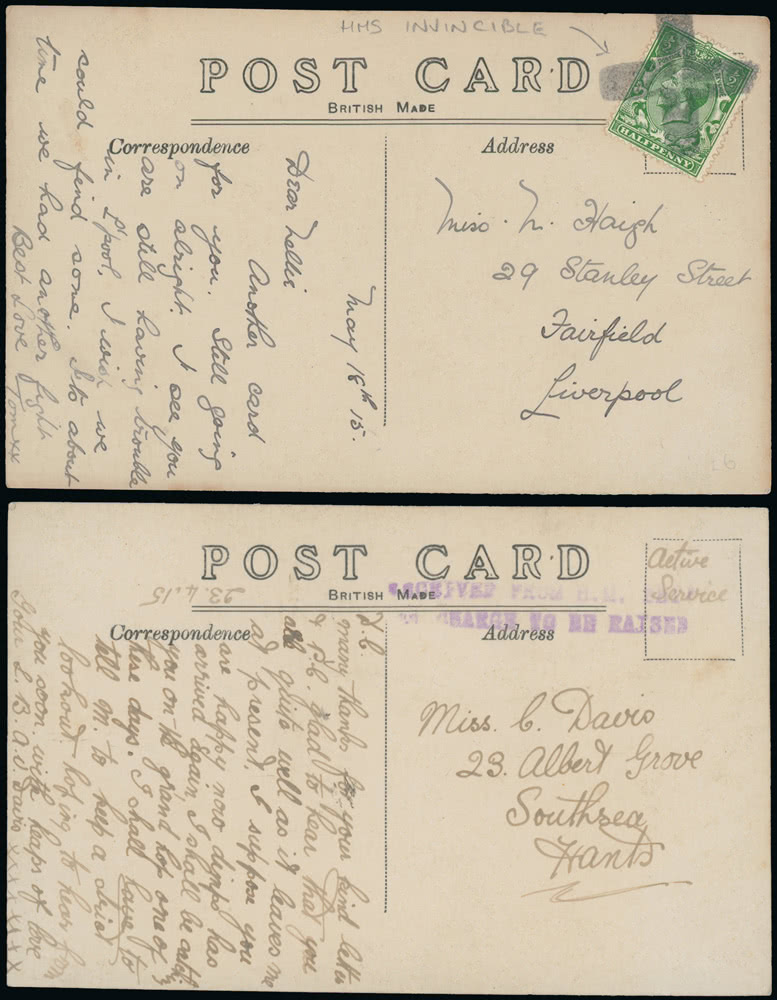 HMS INVINCIBLE
POST CARD
BRITISH MADE
Correspondence
Address
HALFPENNY
May 18th 15.
Dear Nellie
Another card
for you. Still going
on alright. I see you
are still having trouble
in L'pool, I wish we
could find some. Its about
time we had another fight
Best Love Tom xx
Miss. N. Haigh
29 Stanley Street
Fairfield
Liverpool
26
POST CARD
BRITISH MADE
Correspondence
Address
Active
Service
RECEIVED FROM H.M.
CHARGE TO BE RAISED
23.4.15
many thanks for your kind letter
& P.C. Glad to hear that you
are quite well as it leaves me
at present. I suppose you
are happy now dimps has
arrived again, I shall be
you on the grand hop one of
these days. I shall have to
tell M. to keep a strict
lookout. hoping to hear from
you soon. with heaps of love
Miss. C. Davis
23. Albert Grove
Southsea
Hants